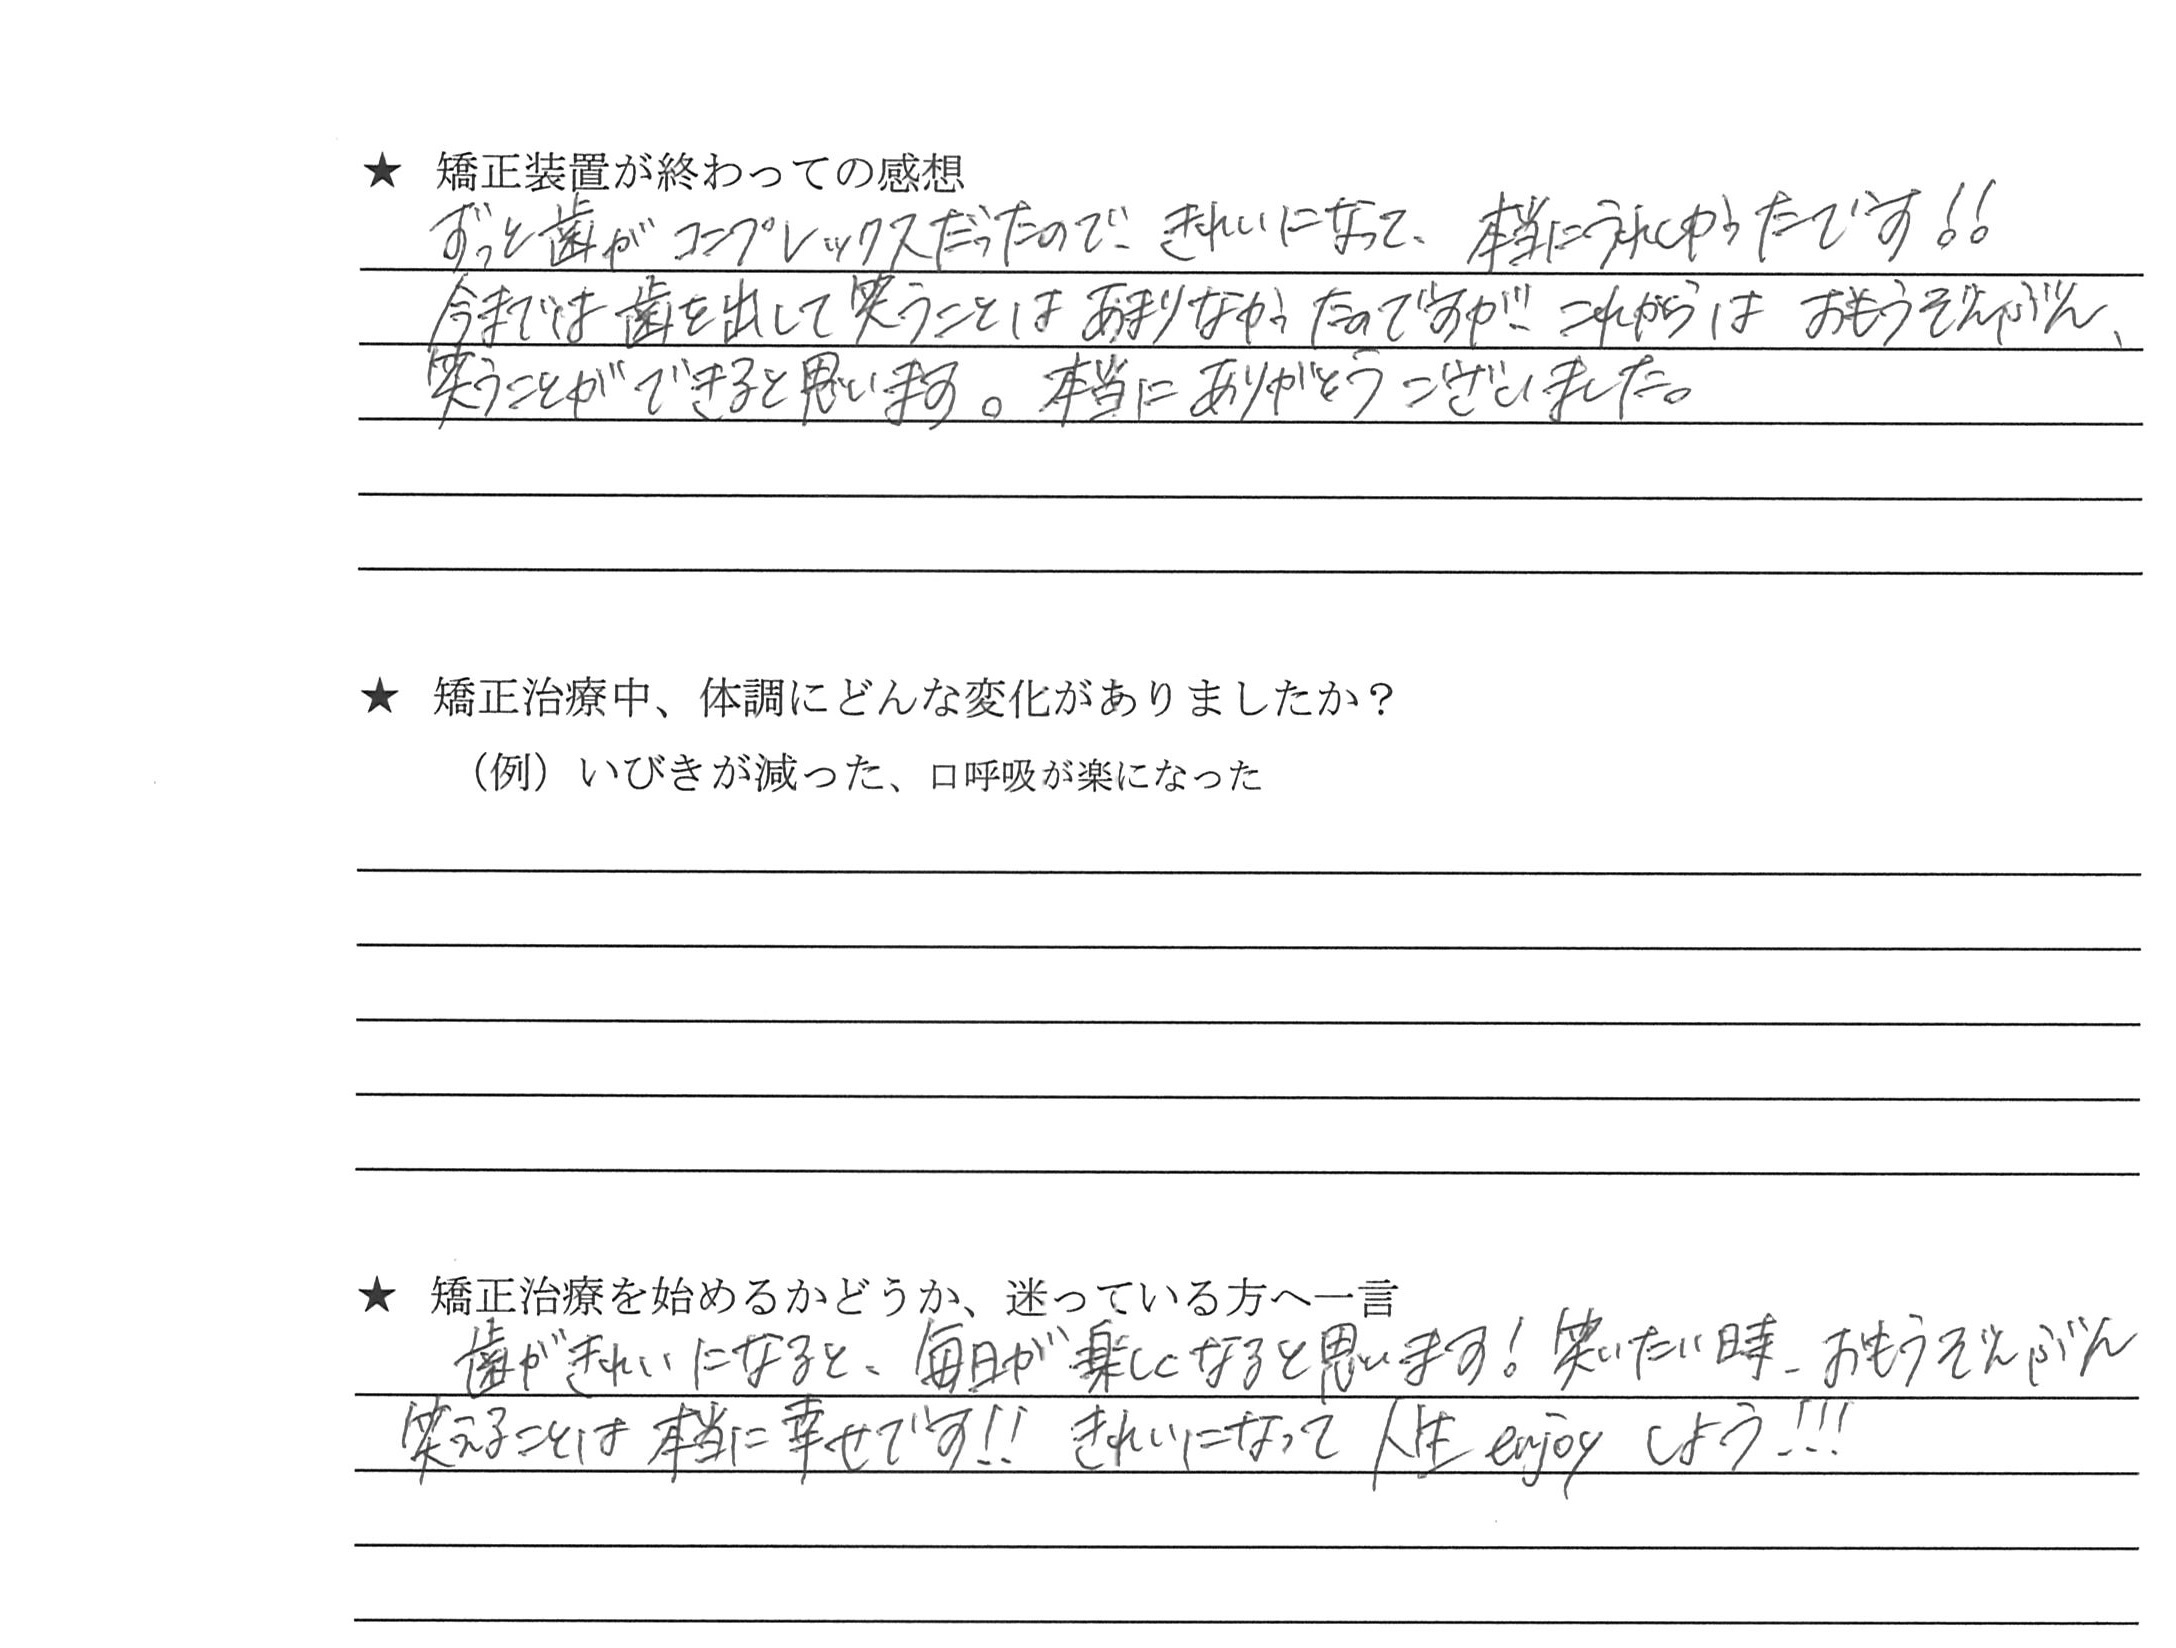 ★ 矯正装置が終わっての感想
ずっと歯がコンプレックスだったので、きれいになって、本当にうれしかったです!!
今までは歯を出して笑うことはあまりなかったのですが、これからはおもうぞんぶん、
笑うことができると思います。本当にありがとうございました。
★ 矯正治療中、体調にどんな変化がありましたか？
（例）いびきが減った、口呼吸が楽になった
★ 矯正治療を始めるかどうか、迷っている方へ一言
歯がきれいになると、毎日が楽しくなると思います！笑いたい時、おもうぞんぶん
笑えることは本当に幸せです!! きれいになって人生enjoyしよう!!!